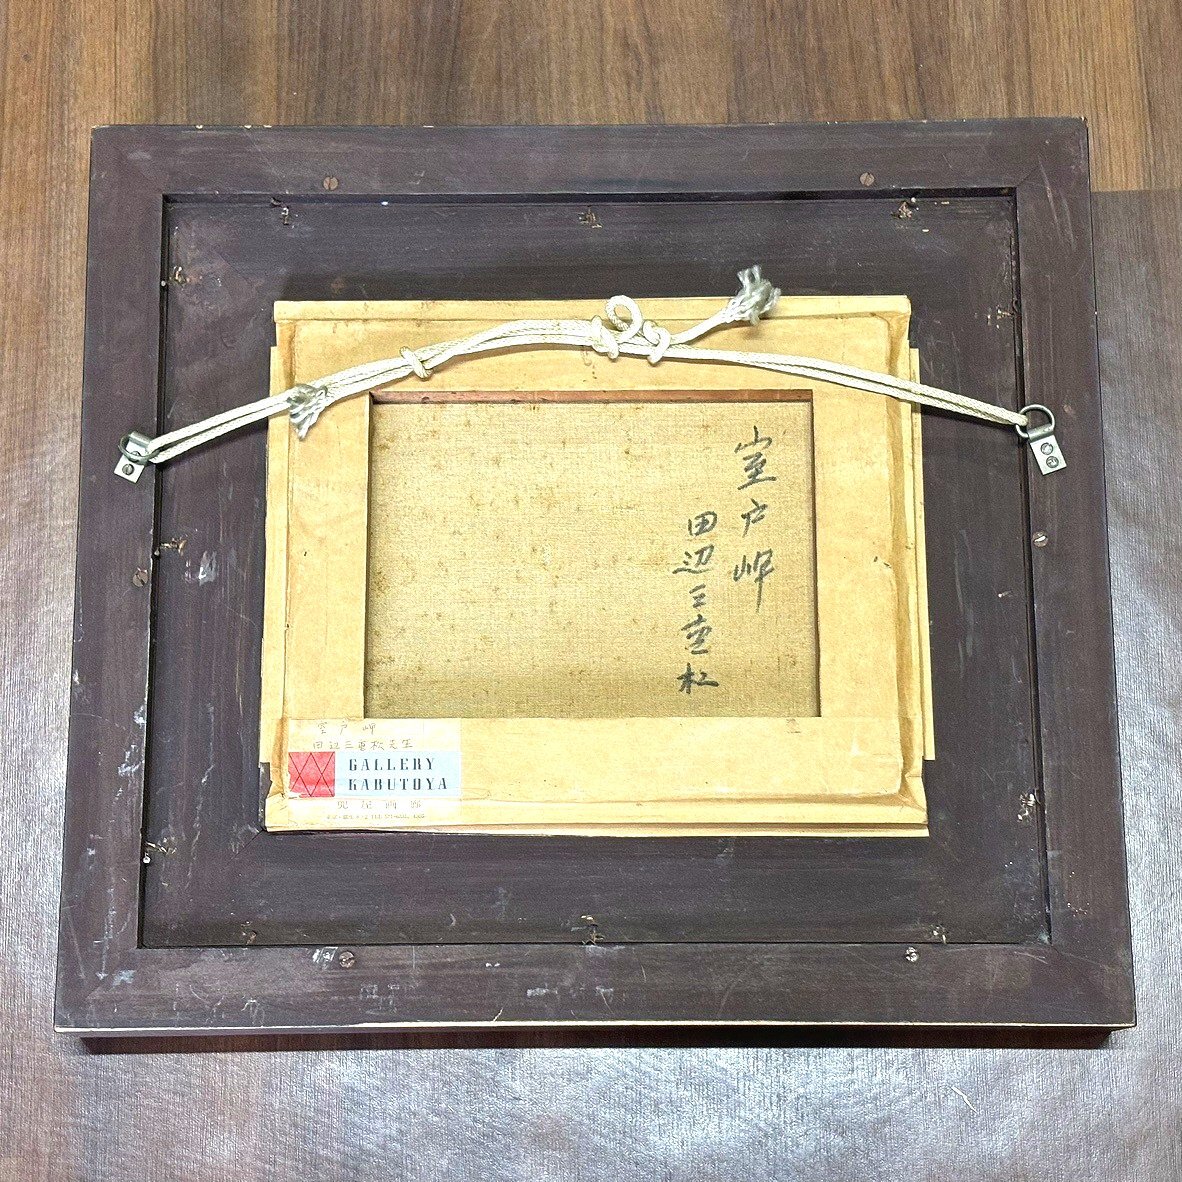 室戸岬
田辺三重松
室戸岬
田辺三重松先生
GALLERY
KABUTOYA
兜屋画廊